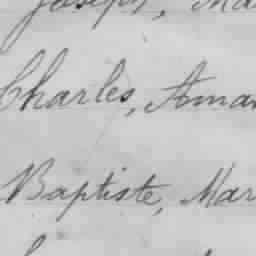 Joseph, Ma
Charles, Aman
Baptiste, Mar